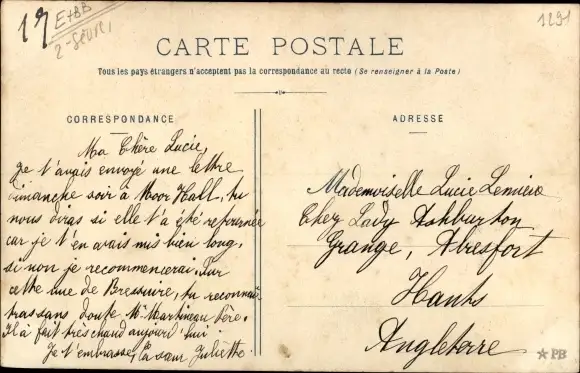 17
E+BB
2-Sèvres
1291
CARTE POSTALE
Tous les pays étrangers n'acceptent pas la correspondance au recto (Se renseigner à la Poste)
CORRESPONDANCE
Ma Chère Lucie,
Je t'avais envoyé une lettre
dimanche soir à Moor Hall, tu
nous diras si elle t'a été retournée
car je t'en avais mis bien long,
si non je recommencerai. Sur
cette vue de Bressuire, tu reconnaî
tras sans doute M. Martineau père.
Il a fait très chaud aujourd'hui.
Je t'embrasse, ta sœur Juliette.
ADRESSE
Mademoiselle Lucie
Chez Lady Ashburton
Grange, Alresfort
Hants
Angleterre
PB